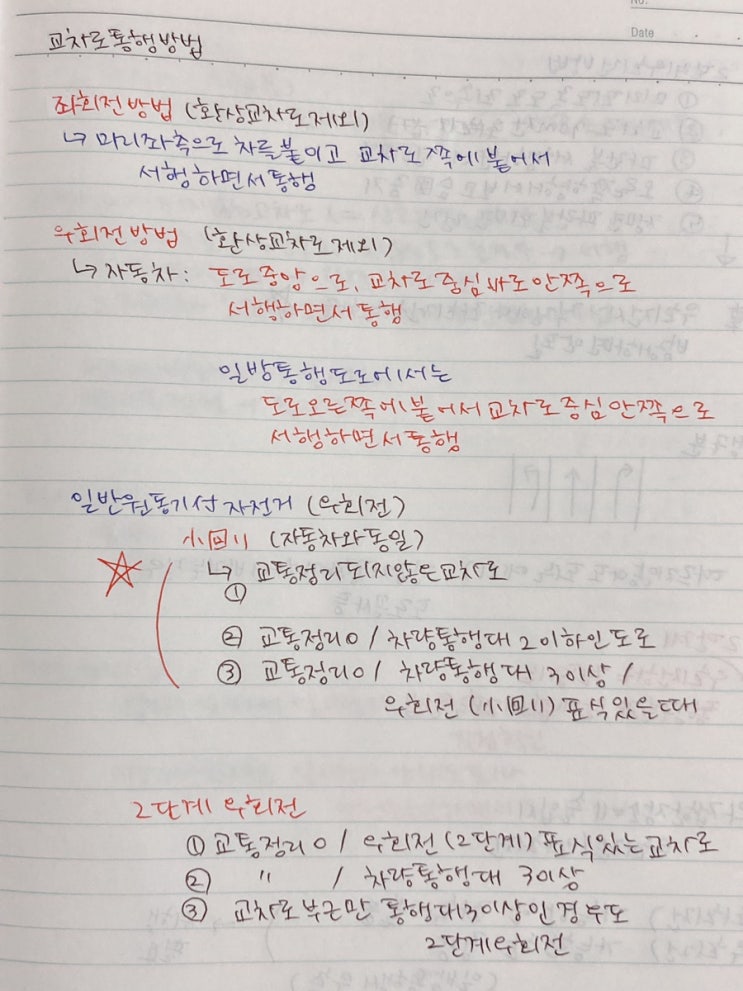 No.
Date
교차로통행방법
좌회전방법 (환상교차로제외)
↳ 미리좌측으로 차를붙이고 교차로쪽에붙어서
서행하면서통행
우회전방법 (환상교차로제외)
↳ 자동차: 도로중앙으로, 교차로중심바로안쪽으로
서행하면서통행
일방통행도로에서는
도로오른쪽에붙어서교차로중심안쪽으로
서행하면서통행
일반원동기부자전거 (우회전)
小回り (자동차와동일)
☆ ↳ 교통정리되지않은교차로
①
② 교통정리O / 차량통행대 2이하인도로
③ 교통정리O / 차량통행대 3이상 /
우회전 (小回り) 표식있을때
2단계 우회전
① 교통정리O / 우회전(2단계) 표식있는교차로
② 〃 / 차량통행대 3이상
③ 교차로부근만 통행대3이상인경우도
2단계우회전